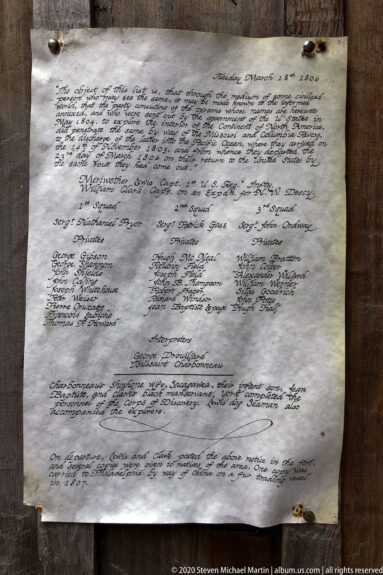 Tuesday March 18th 1806
"The object of this list is, that through the medium of some civilized
person who may see the same, it may be made known to the informed
world, that the party consisting of the persons whose names are hereunto
annexed, and who were sent out by the government of the U'States in
May 1804. to explore the interior of the Continent of North America,
did penetrate the same by way of the Missouri and Columbia Rivers,
to the discharge of the latter into the Pacific Ocean, where they arrived on
the 14th of November 1805, and from whence they departed the
23rd day of March 1806 on their return to the United States by
the same rout they had come out."
Meriwether Lewis Capt. 1st U.S. Regt. Infty.
William Clark Captn. on an Expdn. for N. W. Discy.
1st Squad 2nd Squad 3rd Squad
Sergt. Nathaniel Pryor Sergt. Patrick Gass Sergt. John Ordway
Privates Privates Privates
George Gibson Hugh Mc Neal William Bratton
George Shannon Reubin Field John Colter
John Shields Joseph Field Alexander Willard
John Collins John B. Thompson William Werner
Joseph Whitehouse Robert Frazer Silas Goodrich
Peter Weiser Richard Windsor John Potts
Pierre Cruzatte Jean Baptiste Lepage Hugh Hall
Francois Labiche
Thomas P. Howard
Interpreters
George Drouillard
Toussaint Charbonneau
Charbonneau's Shoshone wife, Sacagawea, their infant son, Jean
Baptiste, and Clark's black manservant, York completed the
personnel of the Corps of Discovery. Lewis' dog Seaman also
accompanied the explorers.
On departure, Lewis and Clark posted the above notice in the fort,
and several copies were given to natives of the area. One copy was
carried to Philadelphia by way of China on a fur trading vessel
in 1807.
© 2020 Steven Michael Martin | album.us.com | all rights reserved